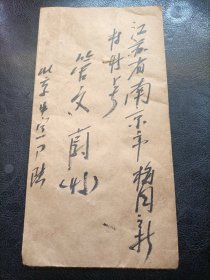 江苏省南京市梅园新
村廿一号
管文蔚(收)
北京